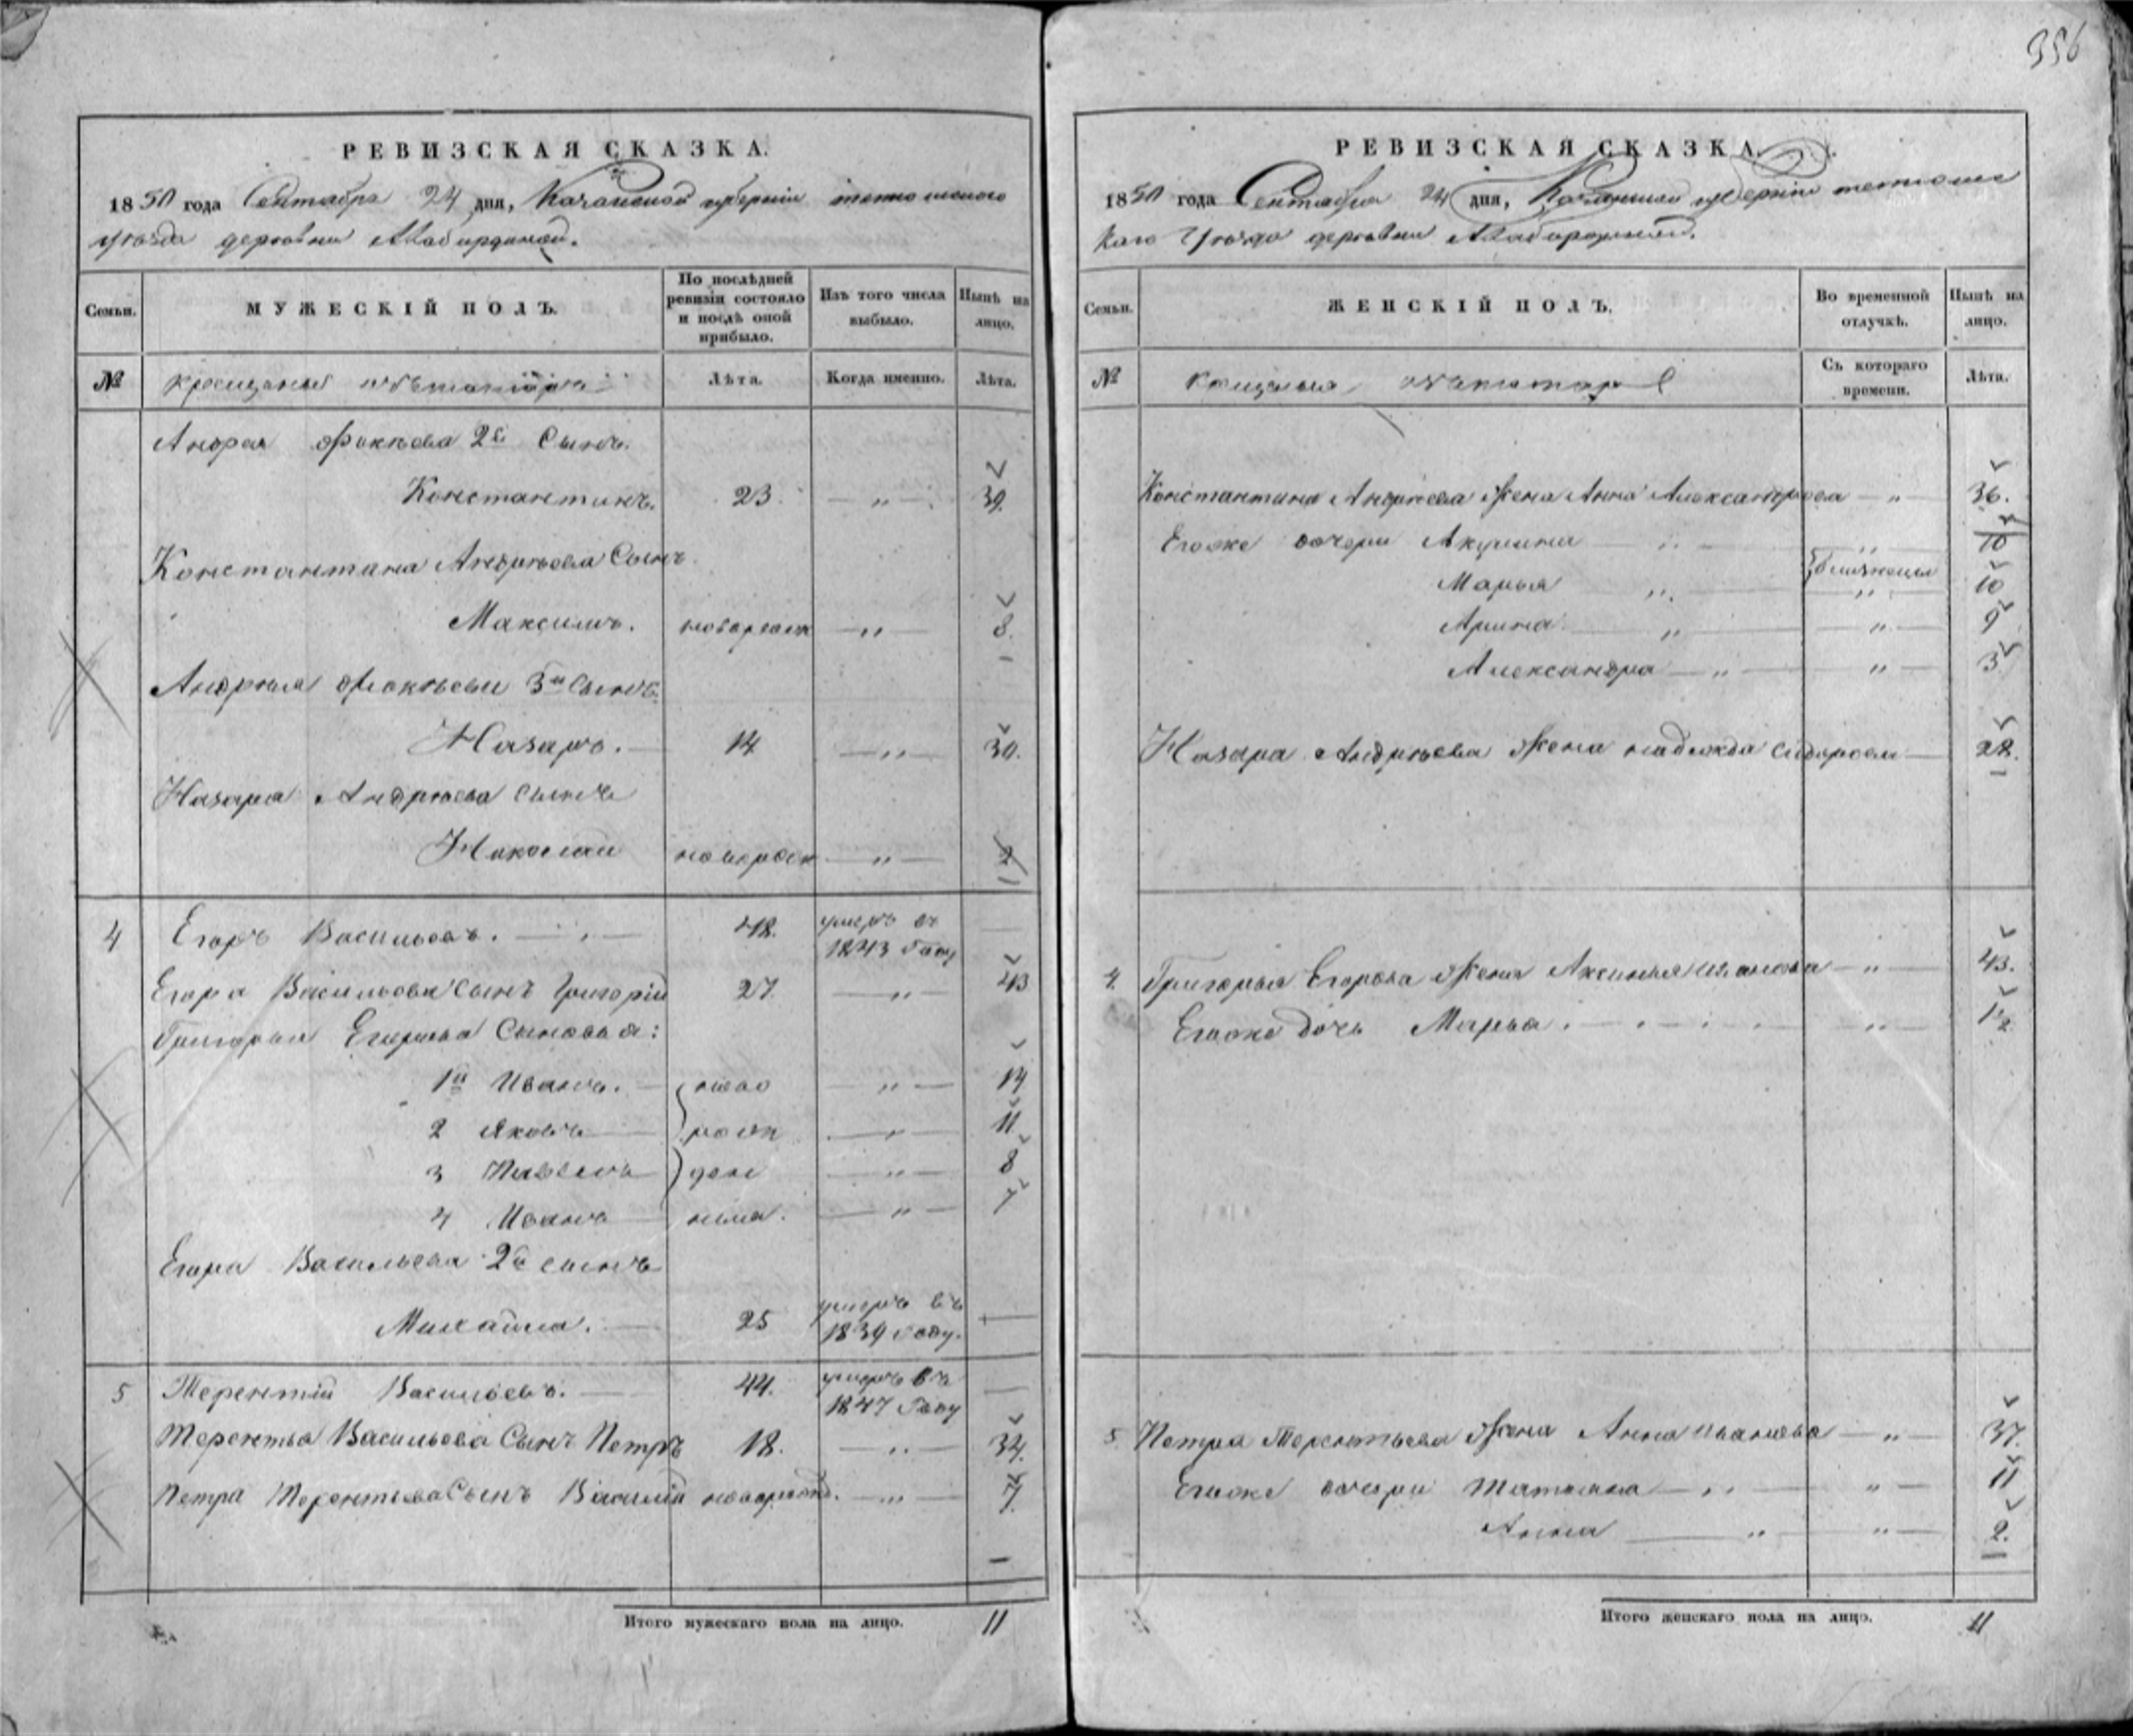 356
РЕВИЗСКАЯ СКАЗКА.
1850 года Сентября 24 дня, Казанской губернiи тетюшского
уѣзда деревни
Семьи.
МУЖЕСКIЙ ПОЛЪ.
По послѣдней ревизiи состояло и послѣ оной прибыло.
Изъ того числа выбыло.
Нынѣ на лицо.
№
крещеные
Лѣта.
Когда именно.
Лѣта.
Андрея Фокѣева 2й Сынъ.
Константинъ. 23. — " — 39.
Константина Андрѣева Сынъ
Максимъ. новорожд — " — 8.
Андрея Фокѣева 3й Сынъ
Назаръ. 14 — " — 30.
Назара Андрѣева сынъ
Николай новорожд — " — 2
4 Егоръ Васильевъ. 48. умеръ въ 1843 году —
Егора Васильева Сынъ Григорiй 27. — " — 43
Григорья Егорова Сыновья:
1й Иванъ. — " — 14
2 Яковъ — " — 11
3 Павелъ — " — 8
4 Иванъ — " — 7
Егора Васильева 2й сынъ
Михайла. 25 умеръ въ 1839 году. —
5 Терентiй Васильевъ. 44. умеръ въ 1847 году —
Терентья Васильева Сынъ Петръ 18. — " — 34.
Петра Терентьева Сынъ Василiй новорожд. — " — 7.
Итого мужескаго пола на лицо. 11
РЕВИЗСКАЯ СКАЗКА.
1850 года Сентября 24 дня, Казанской губернiи тетюшс
каго Уѣзда деревни
Семьи.
ЖЕНСКIЙ ПОЛЪ.
Во временной отлучкѣ.
Нынѣ на лицо.
№
Съ котораго времени.
Лѣта.
Константина Андрѣева Жена Анна Александрова — " — 36.
Егоже дочери Акулина " 10
Марья " близнецы " 10
Арина " — " — 9
Александра — " — " — 3
Назара Андрѣева Жена надежда Сидорова — 28.
4. Григорья Егорова Жена Аксинья — " — 43.
Егоже дочь Марья. — " — 1½
5 Петра Терентьева Жена Анна Иванова — " — 37.
Егоже дочери Татьяна — " — " — 11
Анна — " — " — 2.
Итого женскаго пола на лицо. 11